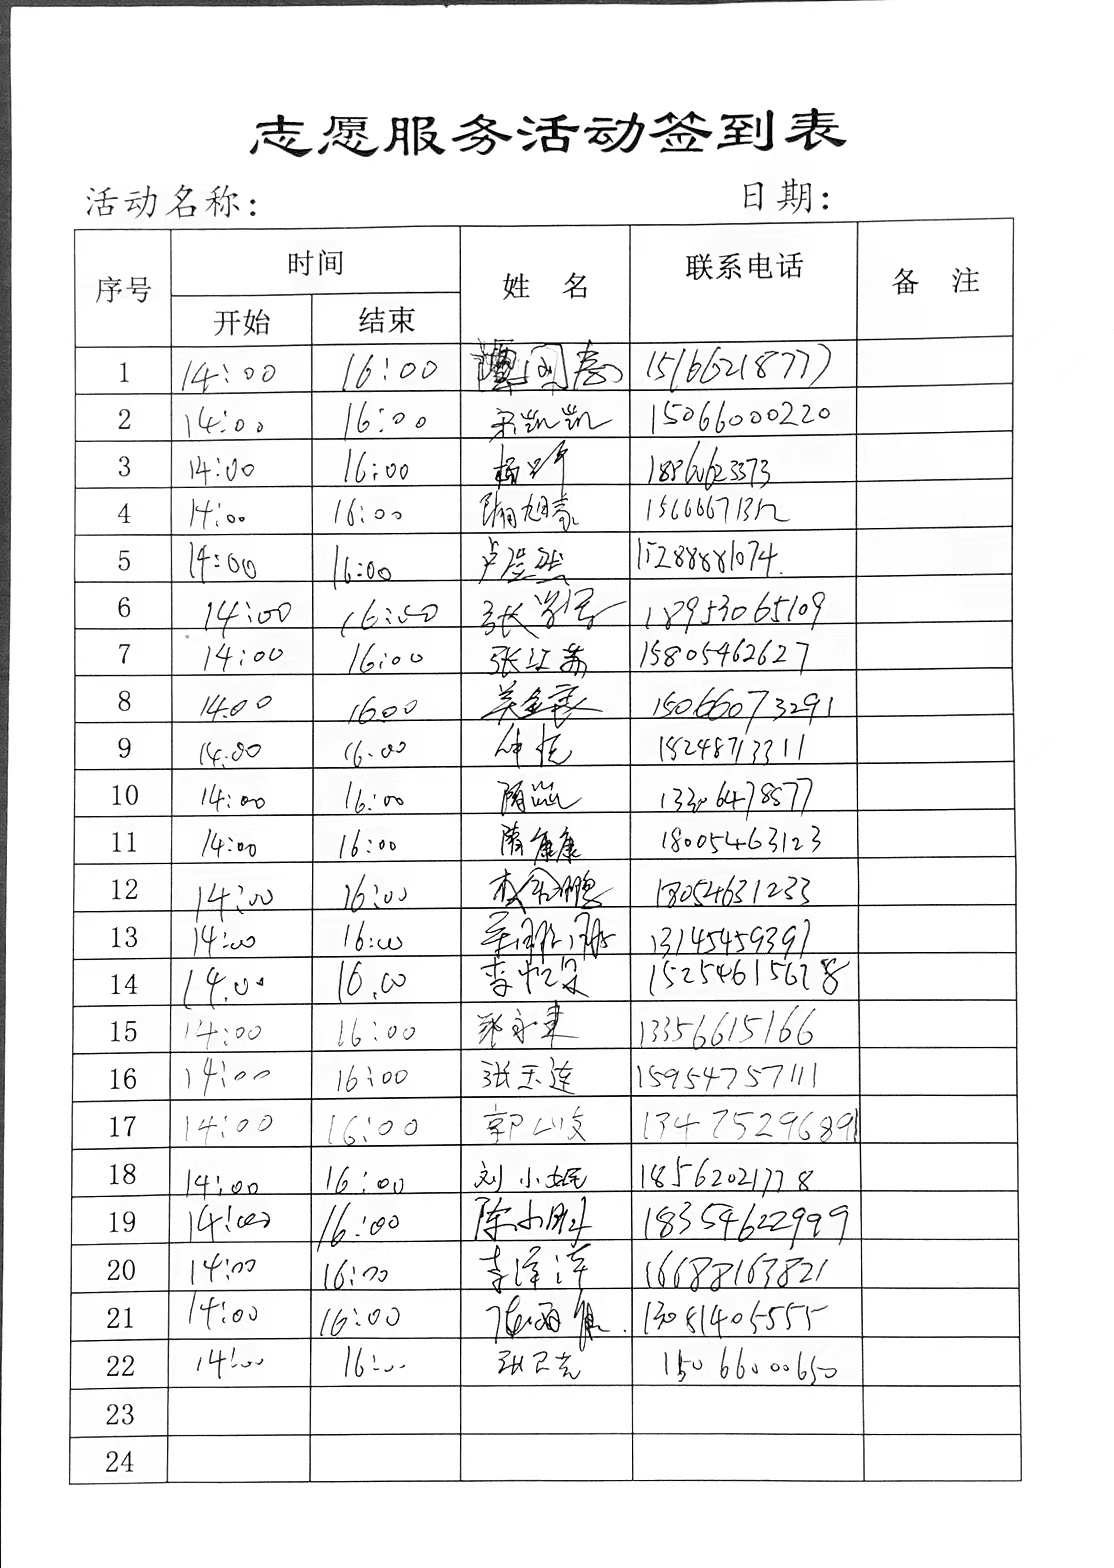 志愿服务活动签到表
活动名称: 日期:
序号 时间 姓 名 联系电话 备 注
开始 结束
1 14:00 16:00 15166218777
2 14:00 16:00 宋凯凯 15066000220
3 14:00 16:00 18860623373
4 14:00 16:00 隋旭豪
5 14:00 16:00 15288881074.
6 14:00 16:00 张 18953065109
7 14:00 16:00 张江涛 15805462627
8 14:00 16:00 15066073291
9 14:00 16:00 15248713311
10 14:00 16:00 隋 13306478577
11 14:00 16:00 隋康康 18005463123
12 14:00 16:00 18054631233
13 14:00 16:00 13145459391
14 14:00 16:00 李 15254615678
15 14:00 16:00 郑永建 13356615166
16 14:00 16:00 张玉莲 15954757111
17 14:00 16:00 郭 13475296891
18 14:00 16:00 刘小妮 18562021778
19 14:00 16:00 陈 18354622999
20 14:00 16:00 李泽洋 16688163821
21 14:00 16:00 13081405555
22 14:00 16:00 张卫亮 15066000650
23
24